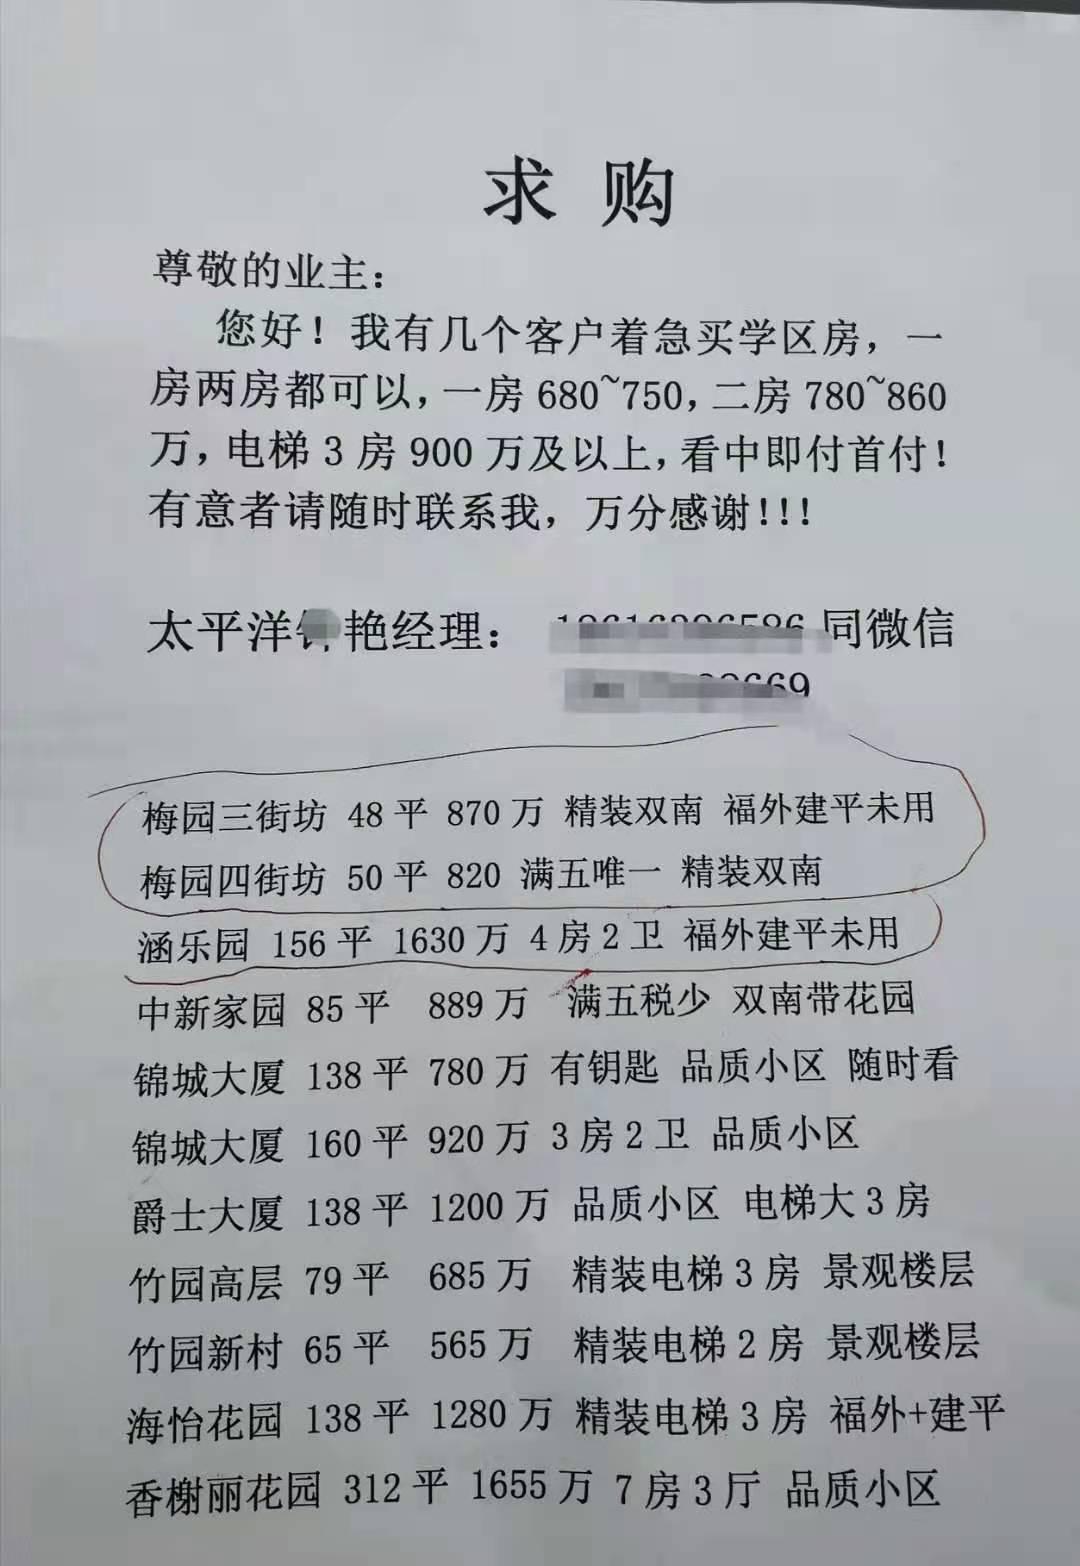 求购
尊敬的业主：
您好！我有几个客户着急买学区房，一
房两房都可以，一房 680~750，二房 780~860
万，电梯 3 房 900 万及以上，看中即付首付！
有意者请随时联系我，万分感谢！！！
太平洋 艳经理： 同微信
669
梅园三街坊 48 平 870 万 精装双南 福外建平未用
梅园四街坊 50 平 820 满五唯一 精装双南
涵乐园 156 平 1630 万 4 房 2 卫 福外建平未用
中新家园 85 平 889 万 满五税少 双南带花园
锦城大厦 138 平 780 万 有钥匙 品质小区 随时看
锦城大厦 160 平 920 万 3 房 2 卫 品质小区
爵士大厦 138 平 1200 万 品质小区 电梯大 3 房
竹园高层 79 平 685 万 精装电梯 3 房 景观楼层
竹园新村 65 平 565 万 精装电梯 2 房 景观楼层
海怡花园 138 平 1280 万 精装电梯 3 房 福外+建平
香榭丽花园 312 平 1655 万 7 房 3 厅 品质小区